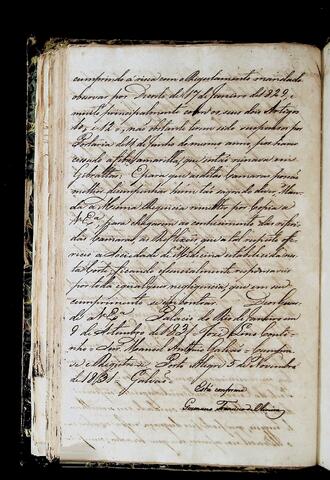 cumprindo á risca com o Regulamento mandado
observar por Decreto de 17 de Janeiro de 1829,
muito principalmente com os seus dois Artigos
10, e 12, não obstante terem sido suspensos por
Portaria de 4 de Junho do mesmo anno, por haver
cessado a febre amarella, que então reinava em
Gibraltar. E para que as ditas Camaras possão
melhor desempenhar hum tal segundo dever, Man-
da a Mesma Regencia remetter por Copia a
V. Exa., para chegarem ao conhecimento das referi-
das Camaras, as reflexoes que a tal respeito offe-
receo a Sociedade de Medicina estabelecida nes-
ta Corte, ficando essencialmente responsaveis
por toda e qualquer negligencia, que em seu
cumprimento se
Deos Guar-
de a V. Exa. Palacio do Rio de Janeiro em
9 de Setembro de 1831. José Lino Couti-
nho - Snr. Manoel Antonio Galvão - Cumpra-
se e Registe-se. Porto Alegre 5 de Novembro
de 1831 - Galvão
Está conforme
Germano Francisco de Oliveira